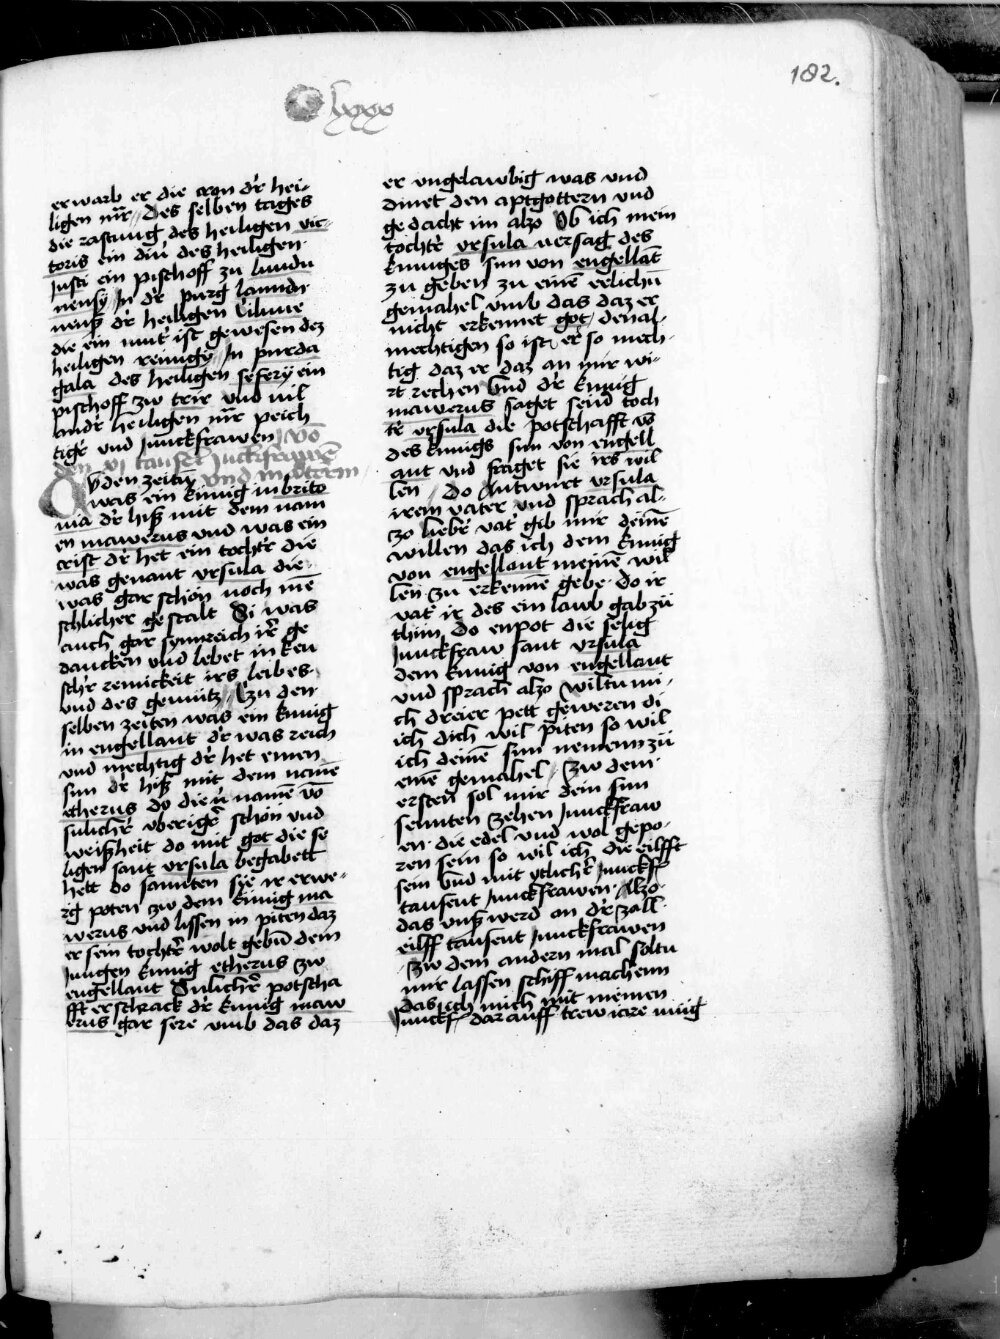 182.
C lxxx
erwarb er die cron dr hei-
ligen mr̄ // Des selben tages
die rastung des heiligen vic-
toris ein din̄ des heiligen
Justi ein pischoff zu lundu
nensy In dr purg lanndn̄
nenß dr heiligen Cilinie
die ein mut̄ ist gewesen dez
heiligen remigy // In purda
gala des heiligen sefery ein
pischoff zw trir vnd vil
andr̄ heiligen mr̄r peich
tigr̄ vnd Junckfrawen / vō
den xi tausēt Junckfrawē
vnd martrern
In den zeitn̄
was ein kunig in brito
nia dr hiß mit dem nam
en mawerus vnd was ein
crist dr het ein tochtr̄ die
was genant vrsula die
was gar schon noch mē
schlicher gestalt Si was
auch gar synnreich ir̄ ge
dancken vnd lebet in keu
schr̄ reinickeit irs leibes
vnd des gemutz // Czu den
selben zeiten was ein kunig
in engellant dr̄ was reich
vnd mechtig dr het einen
sun dr hiß mit dem namē
etherus do die ū namē vō
sulichr̄ vberigr̄ schon vnd
weißheit do mit got die se
ligen sant vrsula begabett
hett do sannten sye ir erwe-
rg poten zw dem kunig ma
werus vnd lissen in piten daz
er sein tochtr̄ wolt gebn̄ dem
Jungen kunig etherus zw
engellant Sulichr̄ potscha
fft erschrack dr kunig maw
erus gar sere vmb das daz
er vngelawbig was vnd
dinet den aptgottern vnd
gedacht im alzo Ob ich mein
tochtr̄ vrsula versag des
kuniges sun von engellāt
zu geben zu einē eelichn̄
gemahel vmb das daz er
nicht erkennet got / den al-
mechtigen so ist er so mech-
tig daz er daz an mir wi-
rt rechen Vnd dr kunig
mawerus saget seinr̄ toch
tr̄ vrsula die potschafft vō
des kunigs sun von engell
ant vnd fraget sie irs wil
len / Do Antwurt vrsula
irem vater vnd sprach al-
zo liebr̄ vatr̄ gib mir deinē
willen das ich dem kunig
von engellant meinē wil
len zu erkennē gebe · do ir
vatr̄ ir des ein lawb gab zū
thun / Do enpot die selig
Junckfraw sant vrsula
dem kunig von engellant
vnd sprach alzo wiltu mi-
ch dreier pett geweren di
ich dich wil piten so wil
ich deinē sun nemenn zū
einē gemahel / Zw dem
ersten sol mir dein sun
sennten zehen Junckfraw
en die edel vnd wol gepo-
ren sein so wil ich die eilfft
sein Vnd mit ytlichr̄ Junckfr̄
tausent Junckfrawen · Alzo
das vnß werd an dr̄ zall
eilff tausent Junckfrawen
Zw dem andern mal soltu
mir lassen schiff machenn
das ich mich mit meinen
Junckfr̄ dar auff